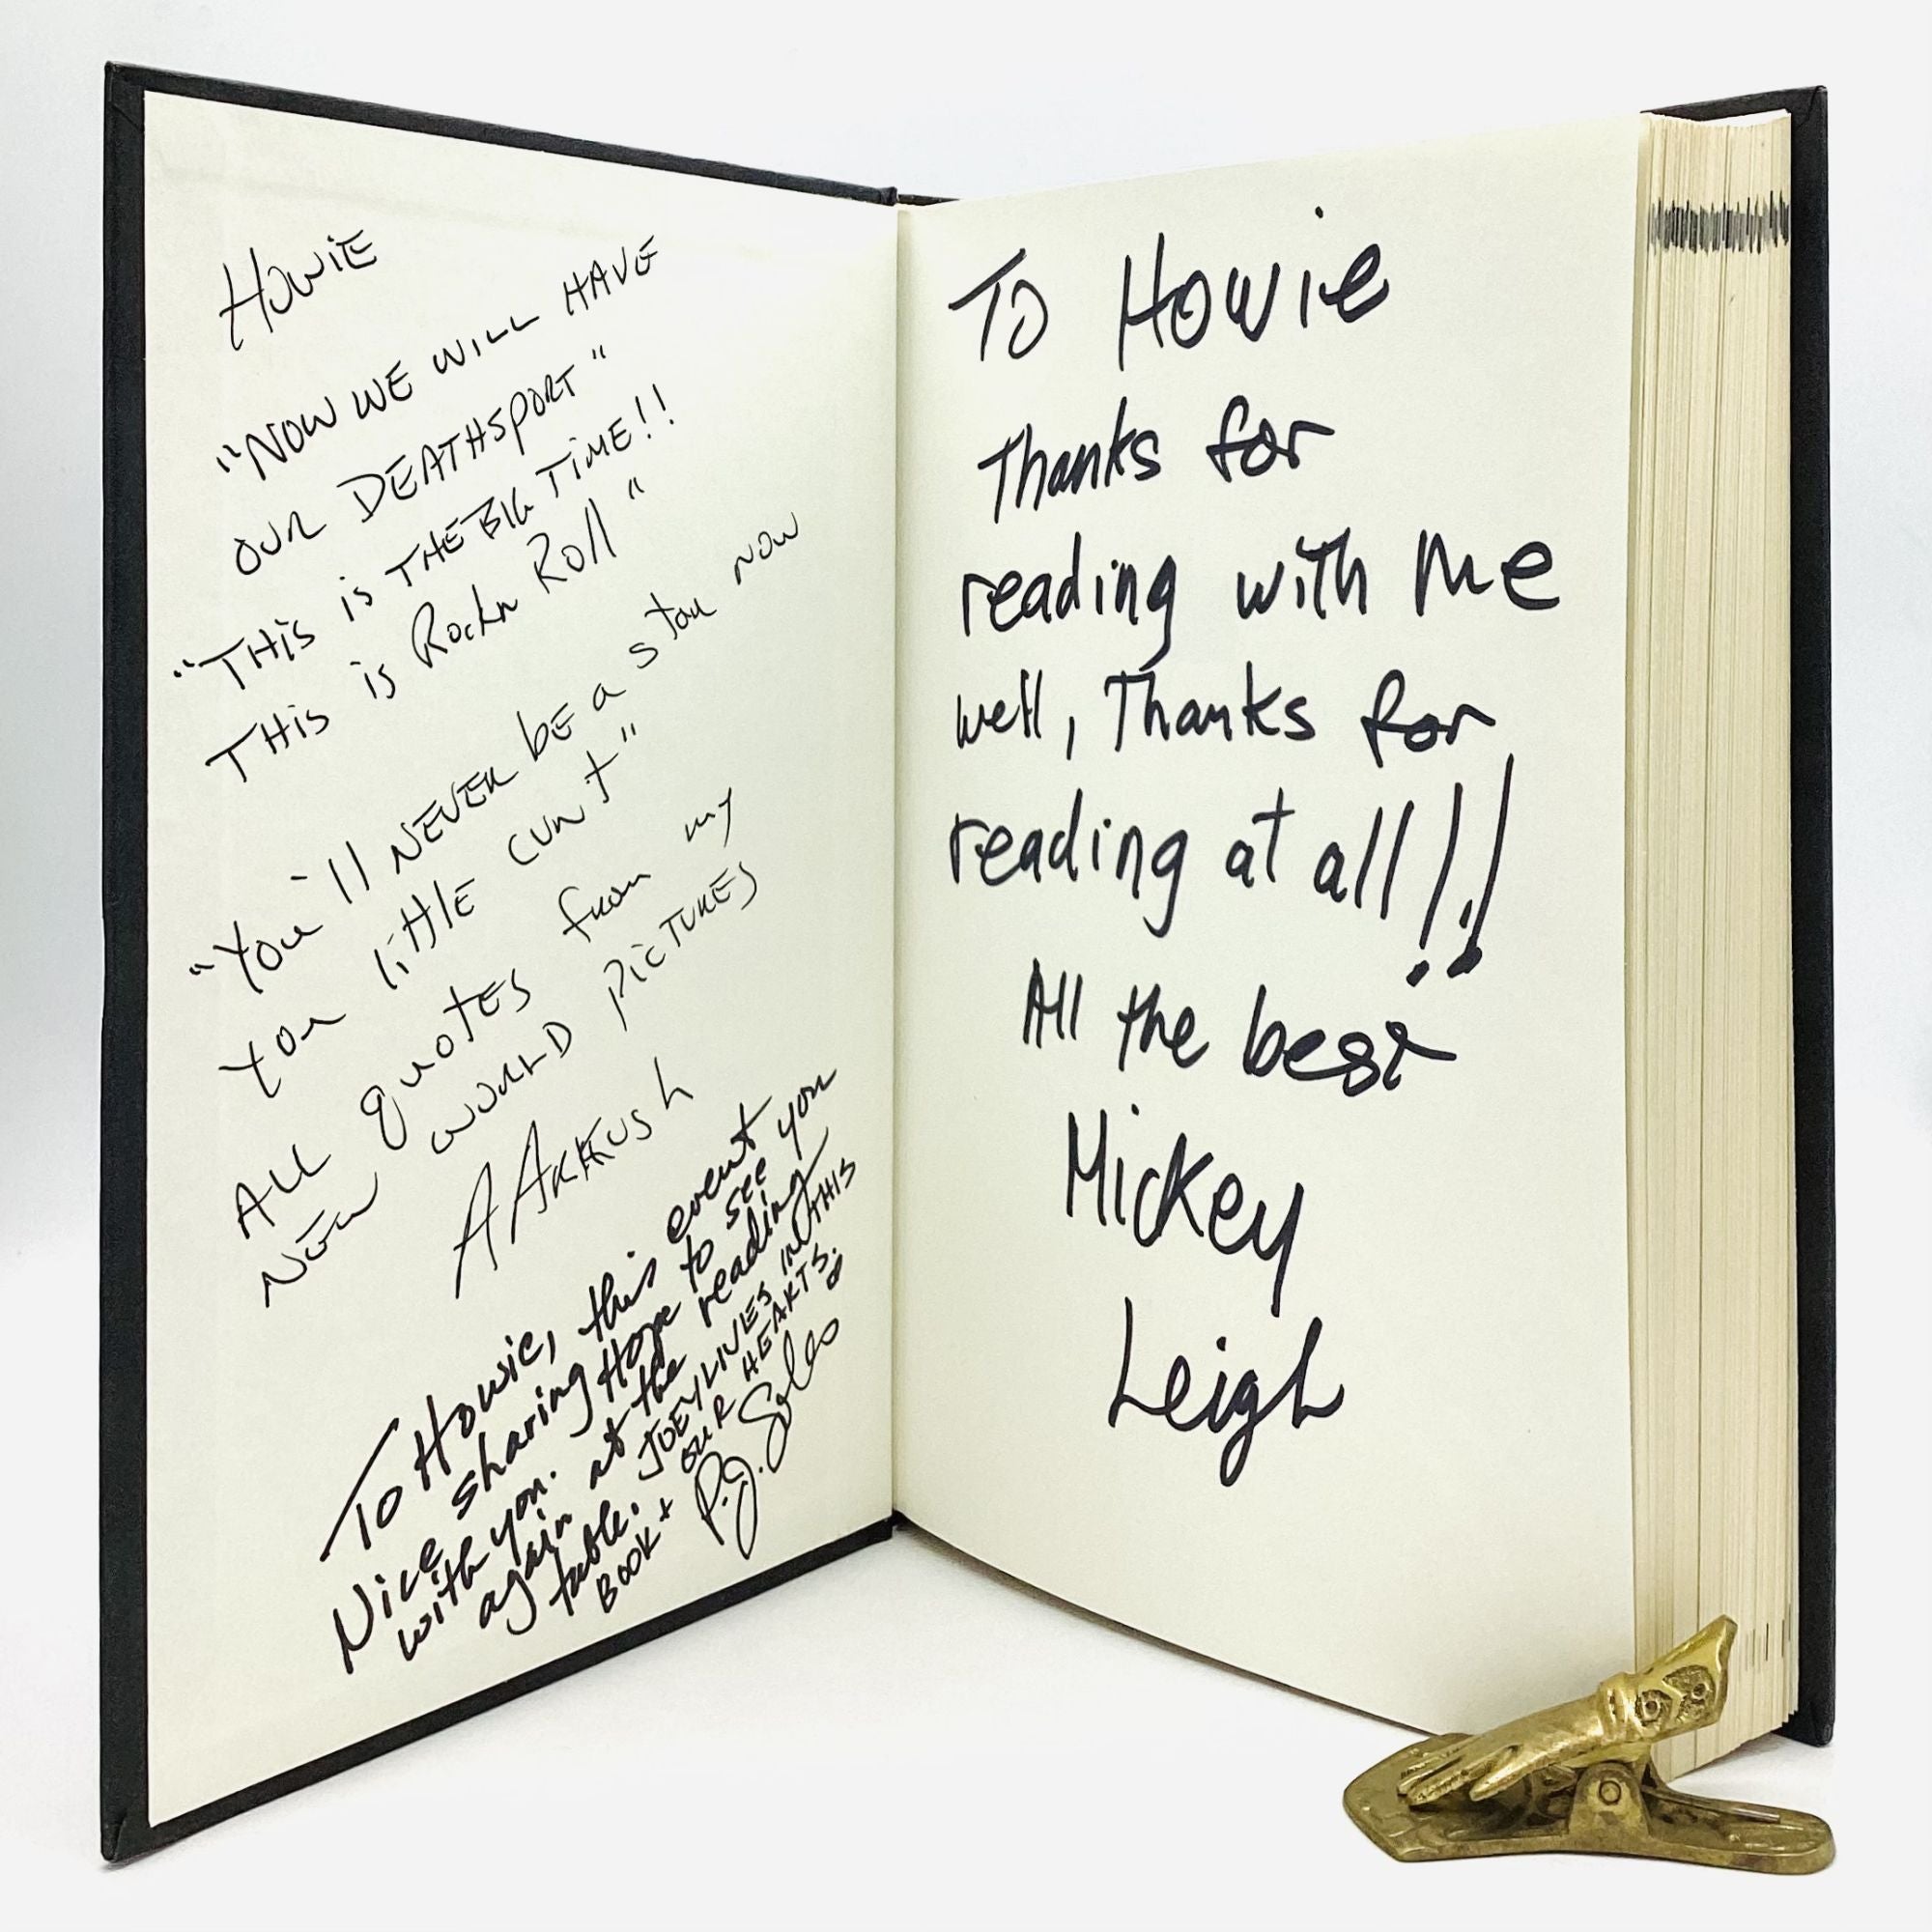 HOWIE
"NOW WE WILL HAVE
OUR DEATHSPORT"
"THIS is THE BIG TIME!!
THIS is Rockn Roll"
"You'll NEVER bE a star now
you littlE cunt"
ALL quotES from my
NEW WORLD PICTURES
A ARKUSH
To Howie,
Nice sharing this event
with you. Hope to see you
again at the reading
table. JOEY LIVES IN THIS
BOOK + OUR HEARTS!
P.J. Soles
To Howie
Thanks for
reading with me
well, Thanks for
reading at all!!
All the best
Mickey
Leigh